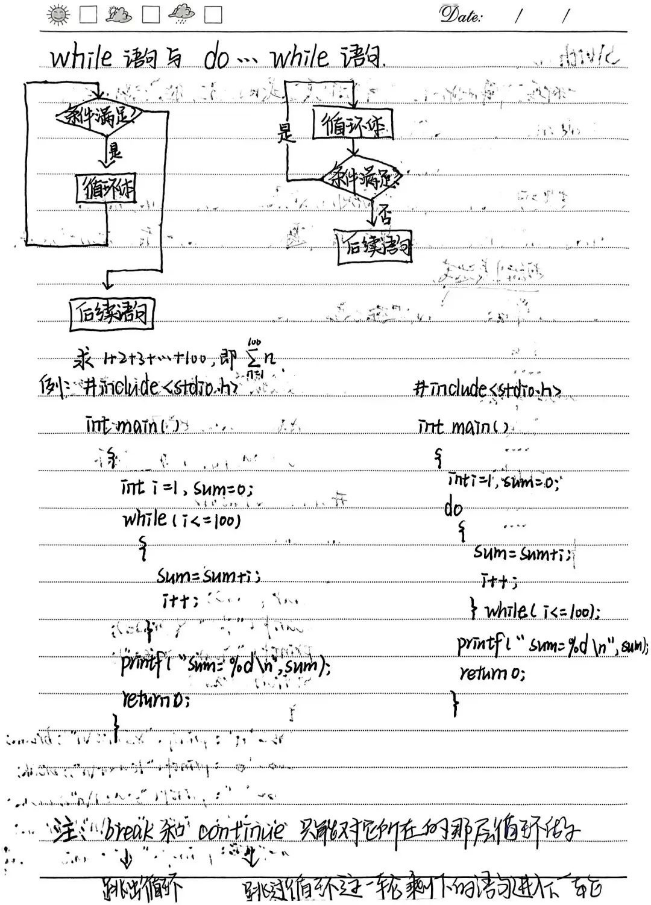 Date: / /
while 语句与 do … while 语句.
条件满足?
是
循环体
后续语句
循环体
是
条件满足?
否
后续语句
求 1+2+3+…+100, 即 ∑ n
100
n=1
例: #include<stdio.h>
int main()
{
int i=1, sum=0;
while(i<=100)
{
sum=sum+i;
i++;
}
printf("sum=%d\n",sum);
return 0;
}
#include<stdio.h>
int main()
{
int i=1, sum=0;
do
{
sum=sum+i;
i++;
} while(i<=100);
printf("sum=%d\n",sum);
return 0;
}
注: break 和 continue 只能对它所在的那层循环
跳出循环
跳过循环这一轮剩下的语句进入下一轮